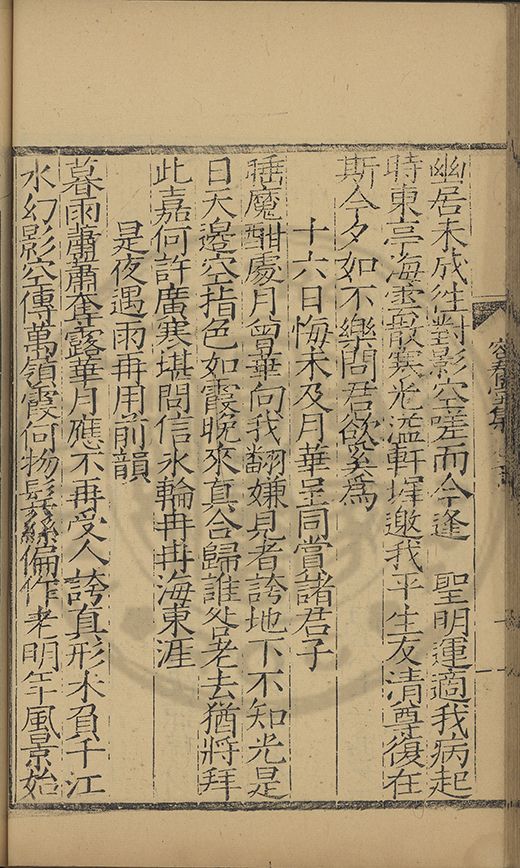 幽居未成徃對影空嗟而今逢　聖明運適我病起
時東亭海雲散寒光溢軒墀邀我平生友清尊復在
斯今夕如不樂問君欲奚為
十六日悔未及月華呈同賞諸君子
睡魔酣處月曾華向我翻嫌見者誇地下不知光是
日天邊空指色如霞晚來真合歸誰咎老去猶將拜
此嘉何許廣寒堪問信氷輪冉冉海東涯
是夜遇雨再用前韻
暮雨蕭蕭奪露華月應不再受人誇真形木負千江
水幻影空傳萬領霞何物鬢絲偏作老明年風景始